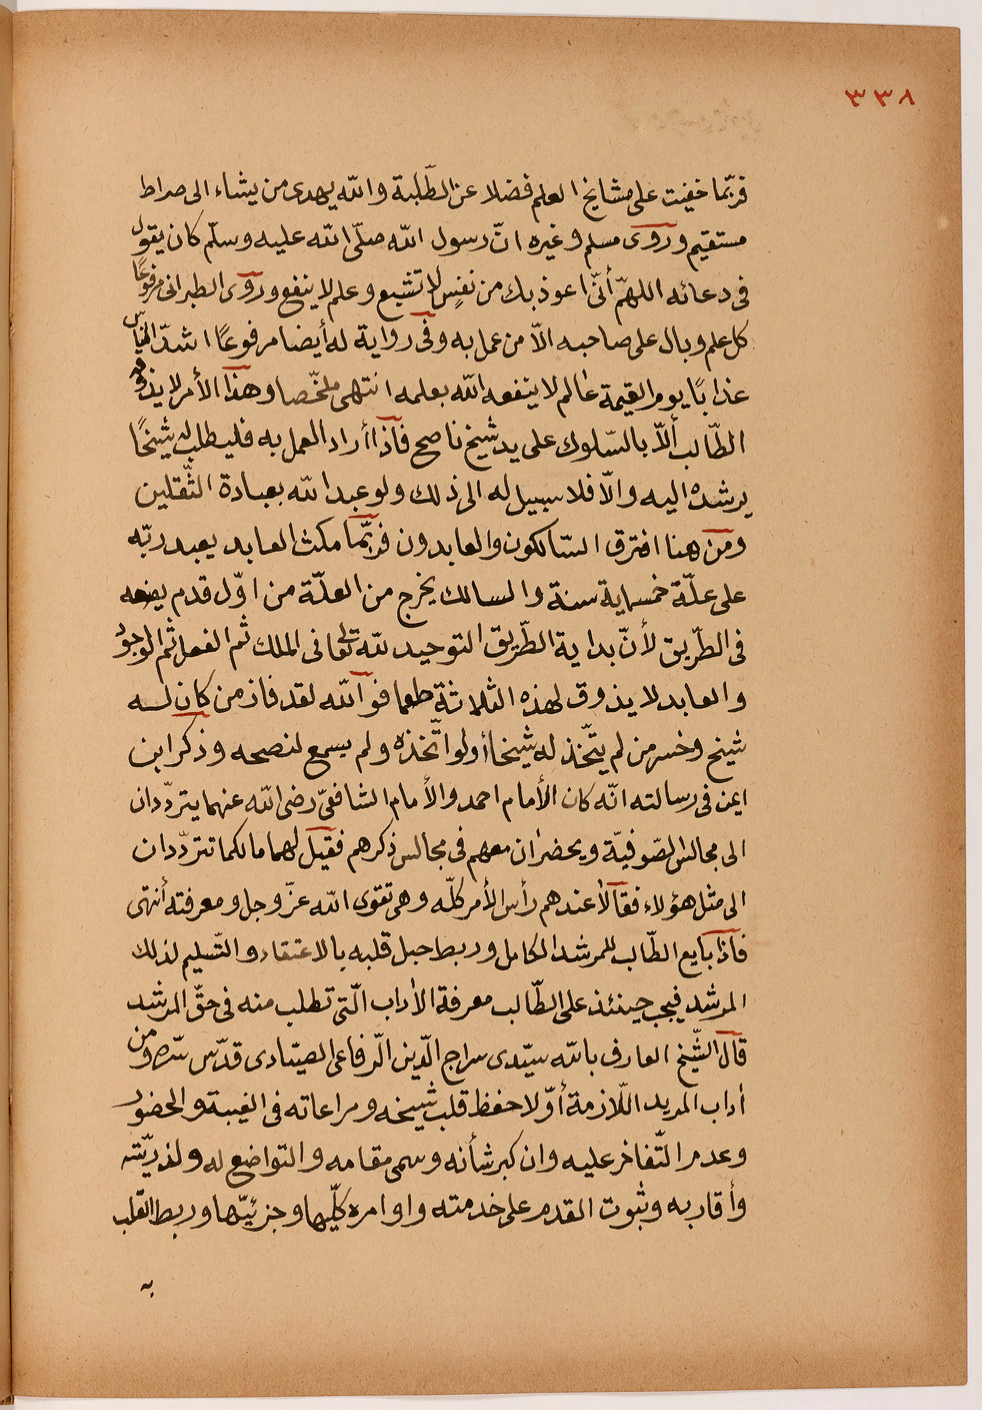 ٣٣٨
فربّما خفيت على مشايخ العلم فضلا عن الطّلبة والله يهدى من يشاء الى صراط
مستقيم وروى مسلم وغيره انّ رسول الله صلّى الله عليه وسلّم كان يقول
فى دعائه اللهمّ أنّى اعوذ بك من نفس لا تشبع وعلم لا ينفع وروى الطبرانى مرفوعًا
كل علم وبال على صاحبه الاّ من عمل به وفى رواية له أيضا مرفوعًا اشدّ الناس
عذابًا يوم القيمة عالم لا ينفعه الله بعلمه انتهى ملخّصا وهذا الأمر لا يذوقه
الطّالب ألاّ بالسّلوك على يد شيخ ناصح فآذا أراد العمل به فليطلب له شيخًا
يرشده اليه والاّ فلا سبيل له الى ذلك ولو عبد الله بعبادة الثّقلين
ومن هنا افترق السّالكون والعابدون فربّما مكث العابد يعبد ربّه
على علّة خمسماية سنة والسالك يخرج من العلّة من اوّل قدم يضعه
فى الطّريق لأنّ بداية الطّريق التوحيد لله تعالى فى الملك ثم الفعل ثم الوجود
والعابد لا يذوق لهذه الثلاثة طعما فوالله لقد فاز من كان له
شيخ وخسر من لم يتّخذ له شيخا أو لو اتّخذه ولم يسمع لنصحه وذكر ابن
ايمن فى رسالته انّه كان الأمام احمد والأمام الشافعىّ رضى الله عنهما يتردّدان
الى مجالس الصّوفيّة ويحضران معهم فى مجالس ذكرهم فقيل لهما مالكما تتردّدان
الى مثل هؤلاء فقالا عندهم رأس الأمر كلّه وهى تقوى الله عزّ وجل ومعرفته أنتهى
فآذا بايع الطّالب للمرشد الكامل وربط حبل قلبه بالاعتقاد والتّسليم لذلك
المرشد فيجب حينئذ على الطّالب معرفة الاداب الّتى تطلب منه فى حقّ المرشد
قال الشّيخ العارف بالله سيّدى سراج الدّين الرّفاعى الصيّادى قدّس سرّه ومن
أداب المريد اللّازمة أوّلا حفظ قلب شيخه ومراعاته فى الغيبة والحضور
وعدم التّفاخر عليه وان كبر شأنه وسمى مقامه والتواضع له ولذريّته
وأقاربه وثبوت القدم على خدمته واوامره كلّيها وجزئيّها وربط القلب
به